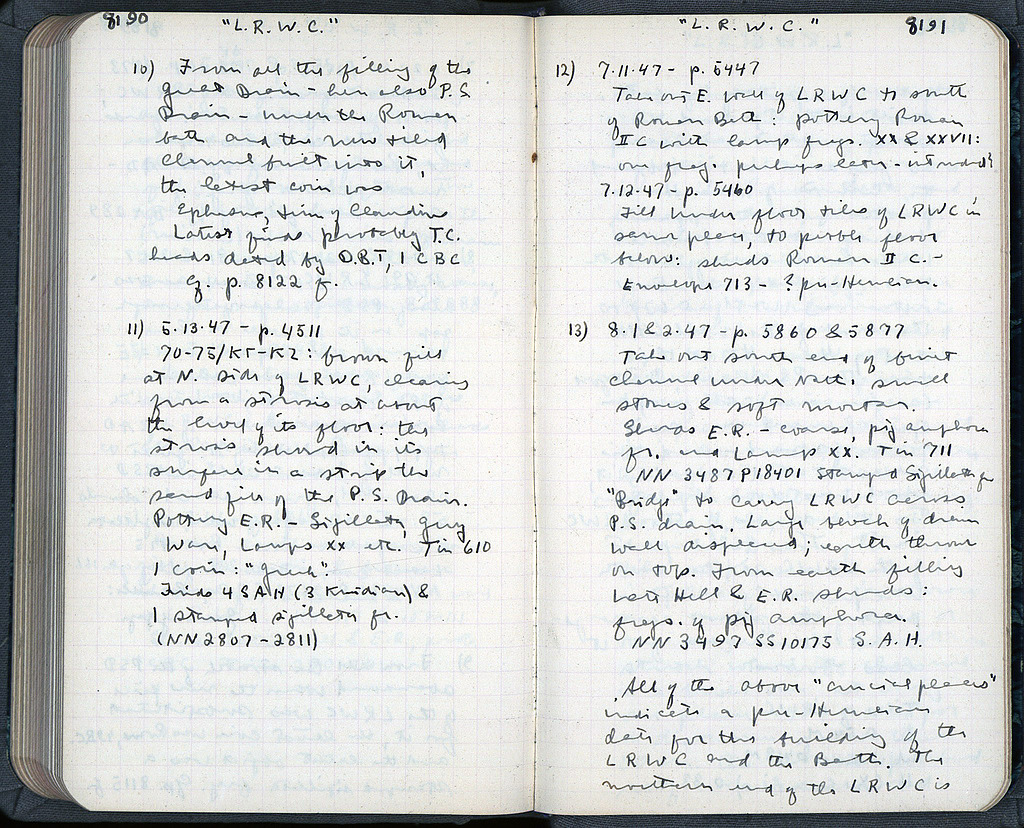 8190
"L.R.W.C."
10) From all the filling of the
great Drain - here also P.S.
Drain - under the Roman
bath and the new tiled
channel built into it,
the latest coin was
Ephesus, time of Claudius
Latest finds probably T.C.
heads dated by D.B.T, 1 C BC
Cf. p. 8122 f.
11) 5.13.47 - p. 4511
70-75/ΚΓ-ΚΖ: brown fill
at N. side of LRWC, clearing
from a strosis at about
the level of its floor: this
strosis showed in its
surface in a strip the
sand fill of the P.S. Drain.
Pottery E.R. - Sigillata, grey
ware, Lamps XX etc. Tin 610
1 coin: "Greek".
Finds 4 SAH (3 Knidian) &
1 stamped sigillata fr.
(NN 2807-2811)
"L.R.W.C."
8191
12) 7.11.47 - p. 5447
Take out E. wall of LRWC to south
of Roman Bath: pottery Roman
II C with lamp frags. XX & XXVII:
one frag. perhaps later - intruded?
7.12.47 - p. 5460
Fill under floor tiles of LRWC in
same place, to pebble floor
below: sherds Roman II C. -
Envelope 713 - ? pre-Herulian.
13) 8.1 & 2.47 - p. 5860 & 5877
Take out south end of built
channel under bath: small
stones & soft mortar.
Sherds E.R. coarse, pij amphora
fr. and Lamp XX. Tin 711
NN 3487 P18401 Stamped Sigillata fr
"Bridge" to carry LRWC across
P.S. drain. Large block of drain
wall displaced; earth thrown
on top. From earth filling
late Hell & E.R. sherds:
frags. of pij amphora.
NN 3497 SS10175 S.A.H.
All of the above "crucial places"
indicate a pre-Herulian
date for the building of the
LRWC and the Bath. The
northern end of the LRWC is